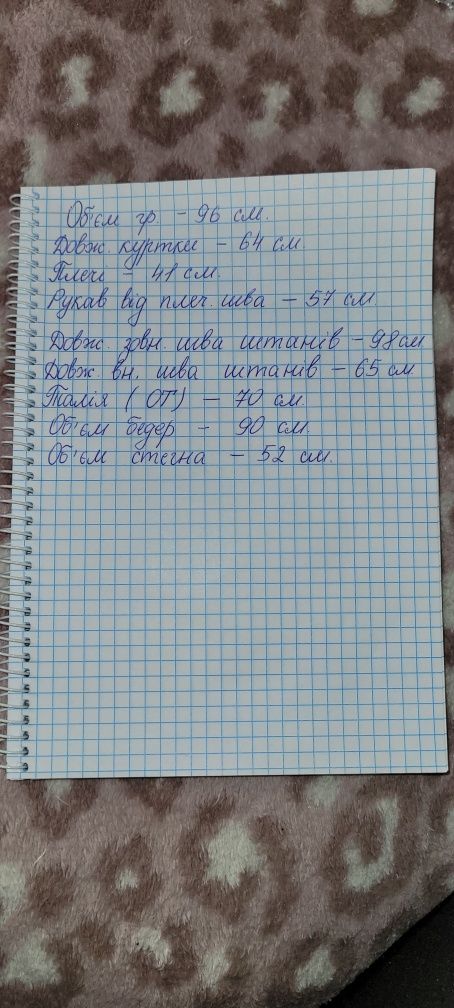 Об'єм гр. - 96 см.
Довж. куртки - 64 см
Плечі - 41 см.
Рукав від плеч. шва - 57 см.
Довж. зовн. шва штанів - 98 см
Довж. вн. шва штанів - 65 см
Талія (ОТ) - 70 см.
Об'єм бедер - 90 см.
Об'єм стегна - 52 см.